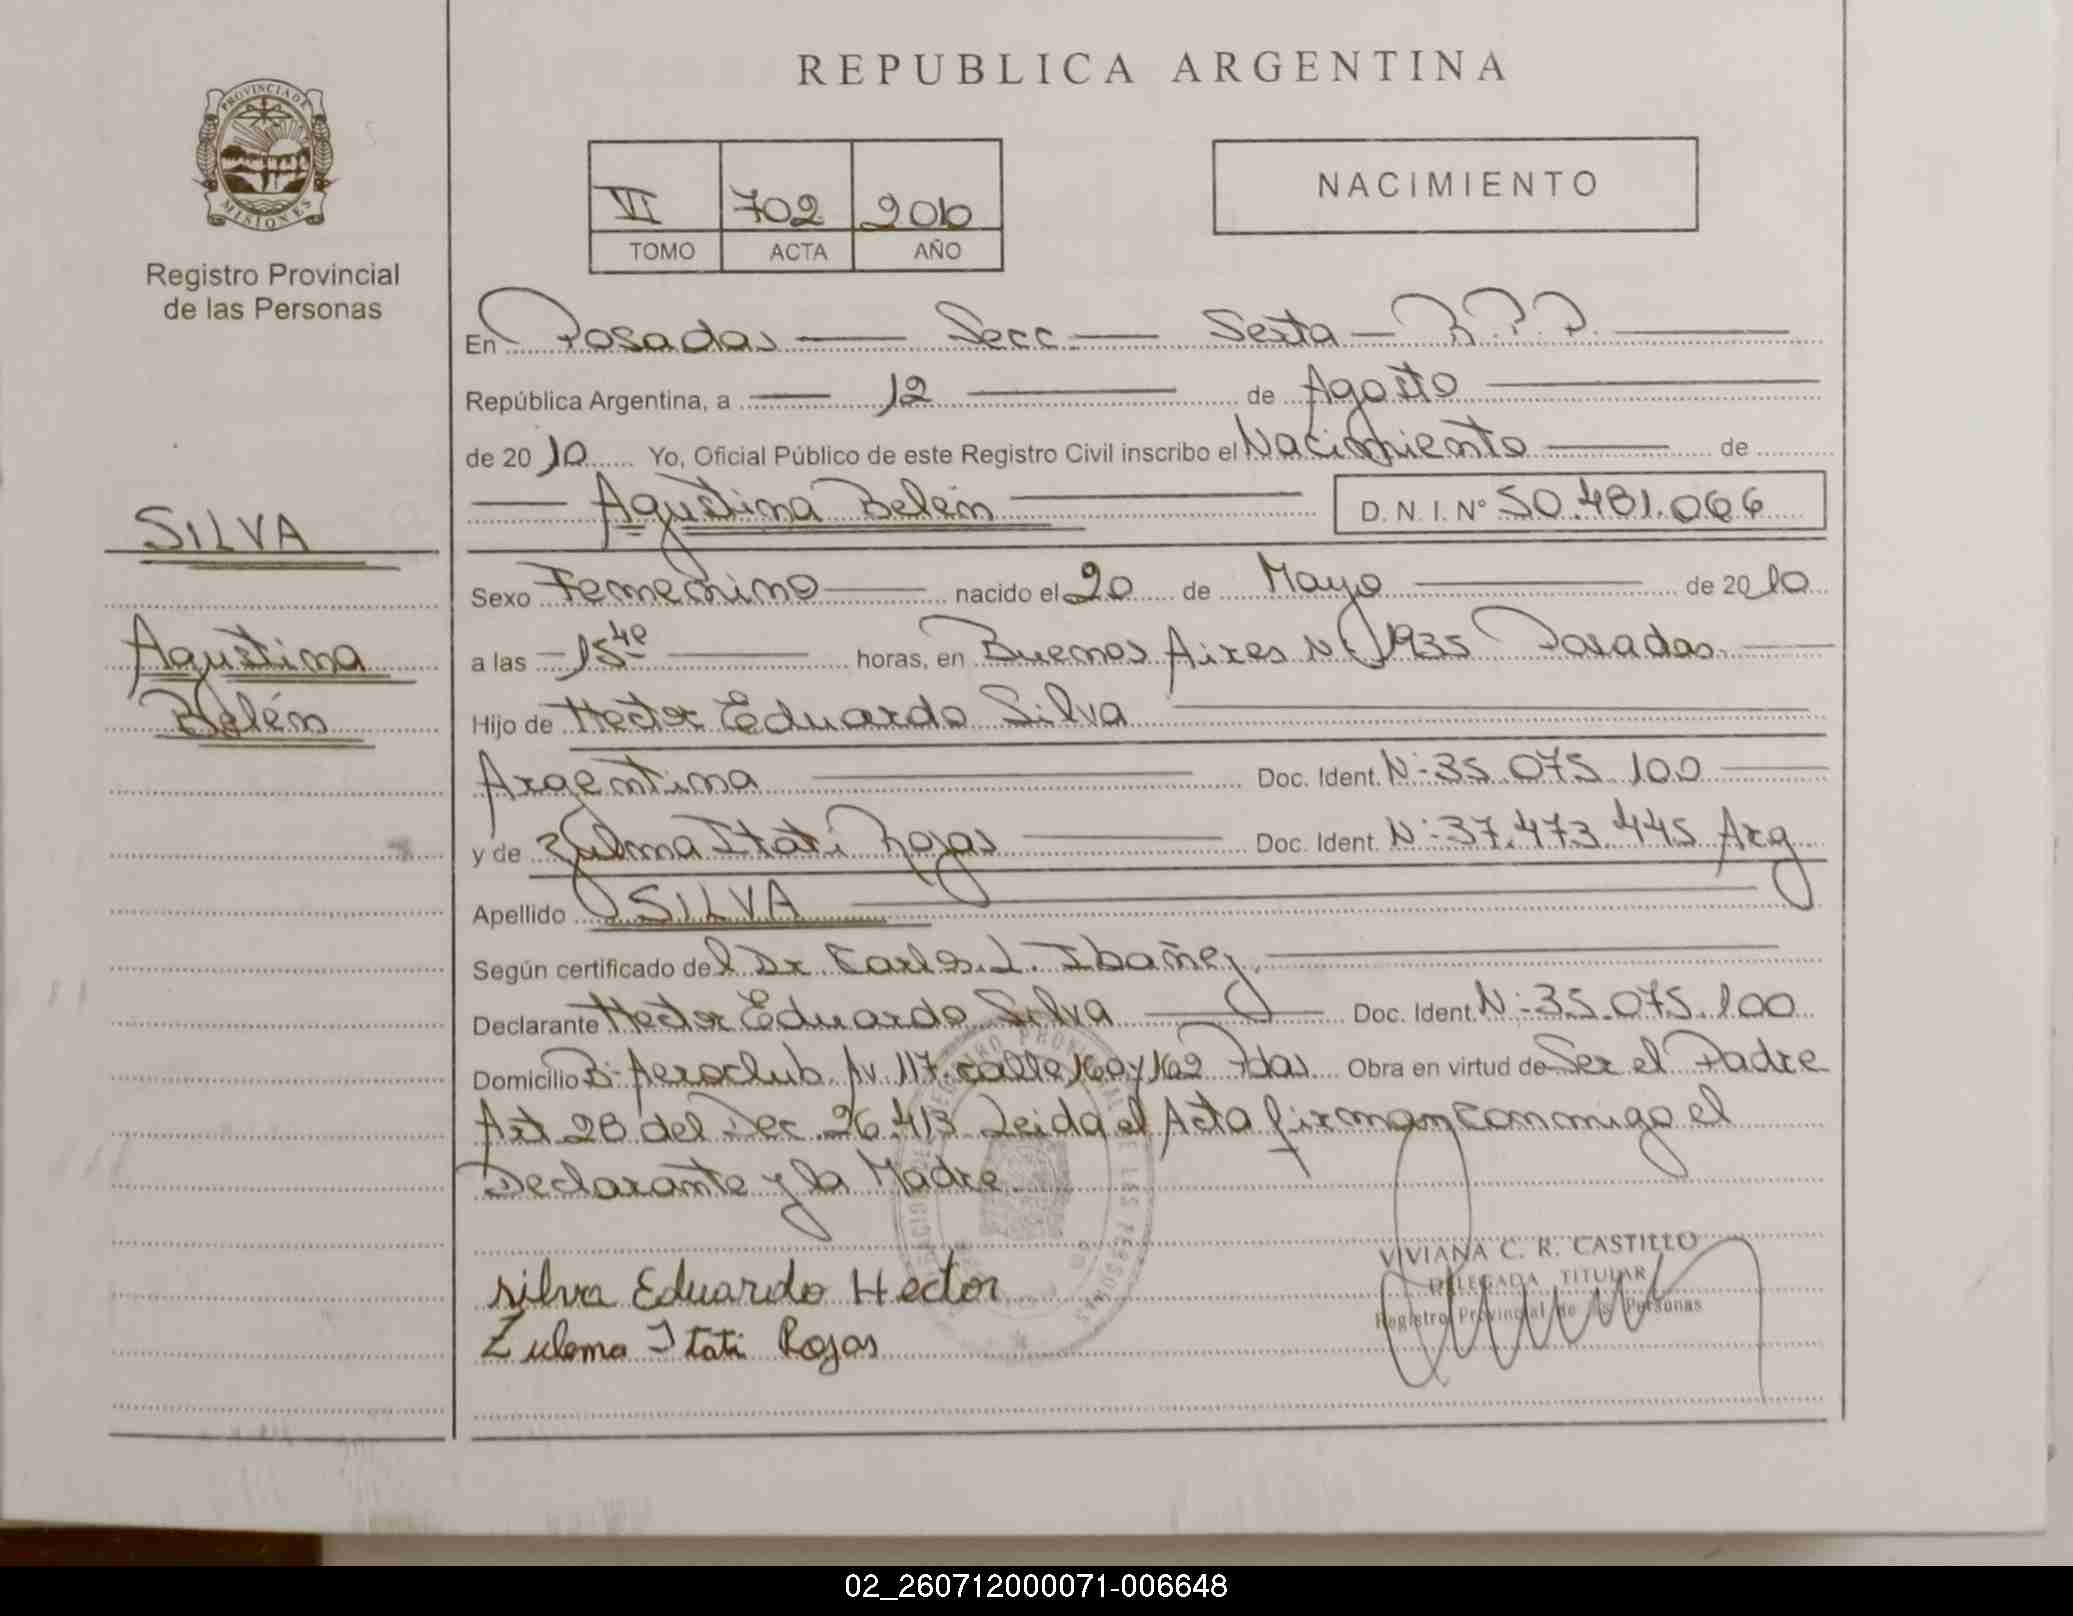 REPUBLICA ARGENTINA
PROVINCIA DE
MISIONES
Registro Provincial
de las Personas
VI 702 2010
TOMO ACTA AÑO
NACIMIENTO
En Posadas Secc. Sexta R.P.P.
República Argentina, a 12 de Agosto
de 2010 Yo, Oficial Público de este Registro Civil inscribo el Nacimiento de
Agustina Belén D.N.I. Nº 50.481.066
SILVA
Agustina
Belén
Sexo Femenino nacido el 20 de Mayo de 2010
a las 15 40 horas, en Buenos Aires Nº 1935 Posadas
Hijo de Hector Eduardo Silva
Argentina Doc. Ident. Nº 35.075.100
y de Zulma Itati Rojas Doc. Ident. Nº 37.473.445 Arg
Apellido SILVA
Según certificado del Dr Carlos. L. Ibañez
Declarante Hector Eduardo Silva Doc. Ident. Nº 35.075.100
Domicilio Bº Aeroclub Av. 117 calle 160 y 162 Pdas Obra en virtud de Ser el Padre
Art 28 del Dec. 26.413 Leida el Acta firman conmigo el
Declarante y la Madre
silva Eduardo Hector
Zulema Itati Rojas
VIVIANA C. R. CASTILLO
DELEGADA TITULAR
Registro Provincial de las Personas
02_260712000071-006648